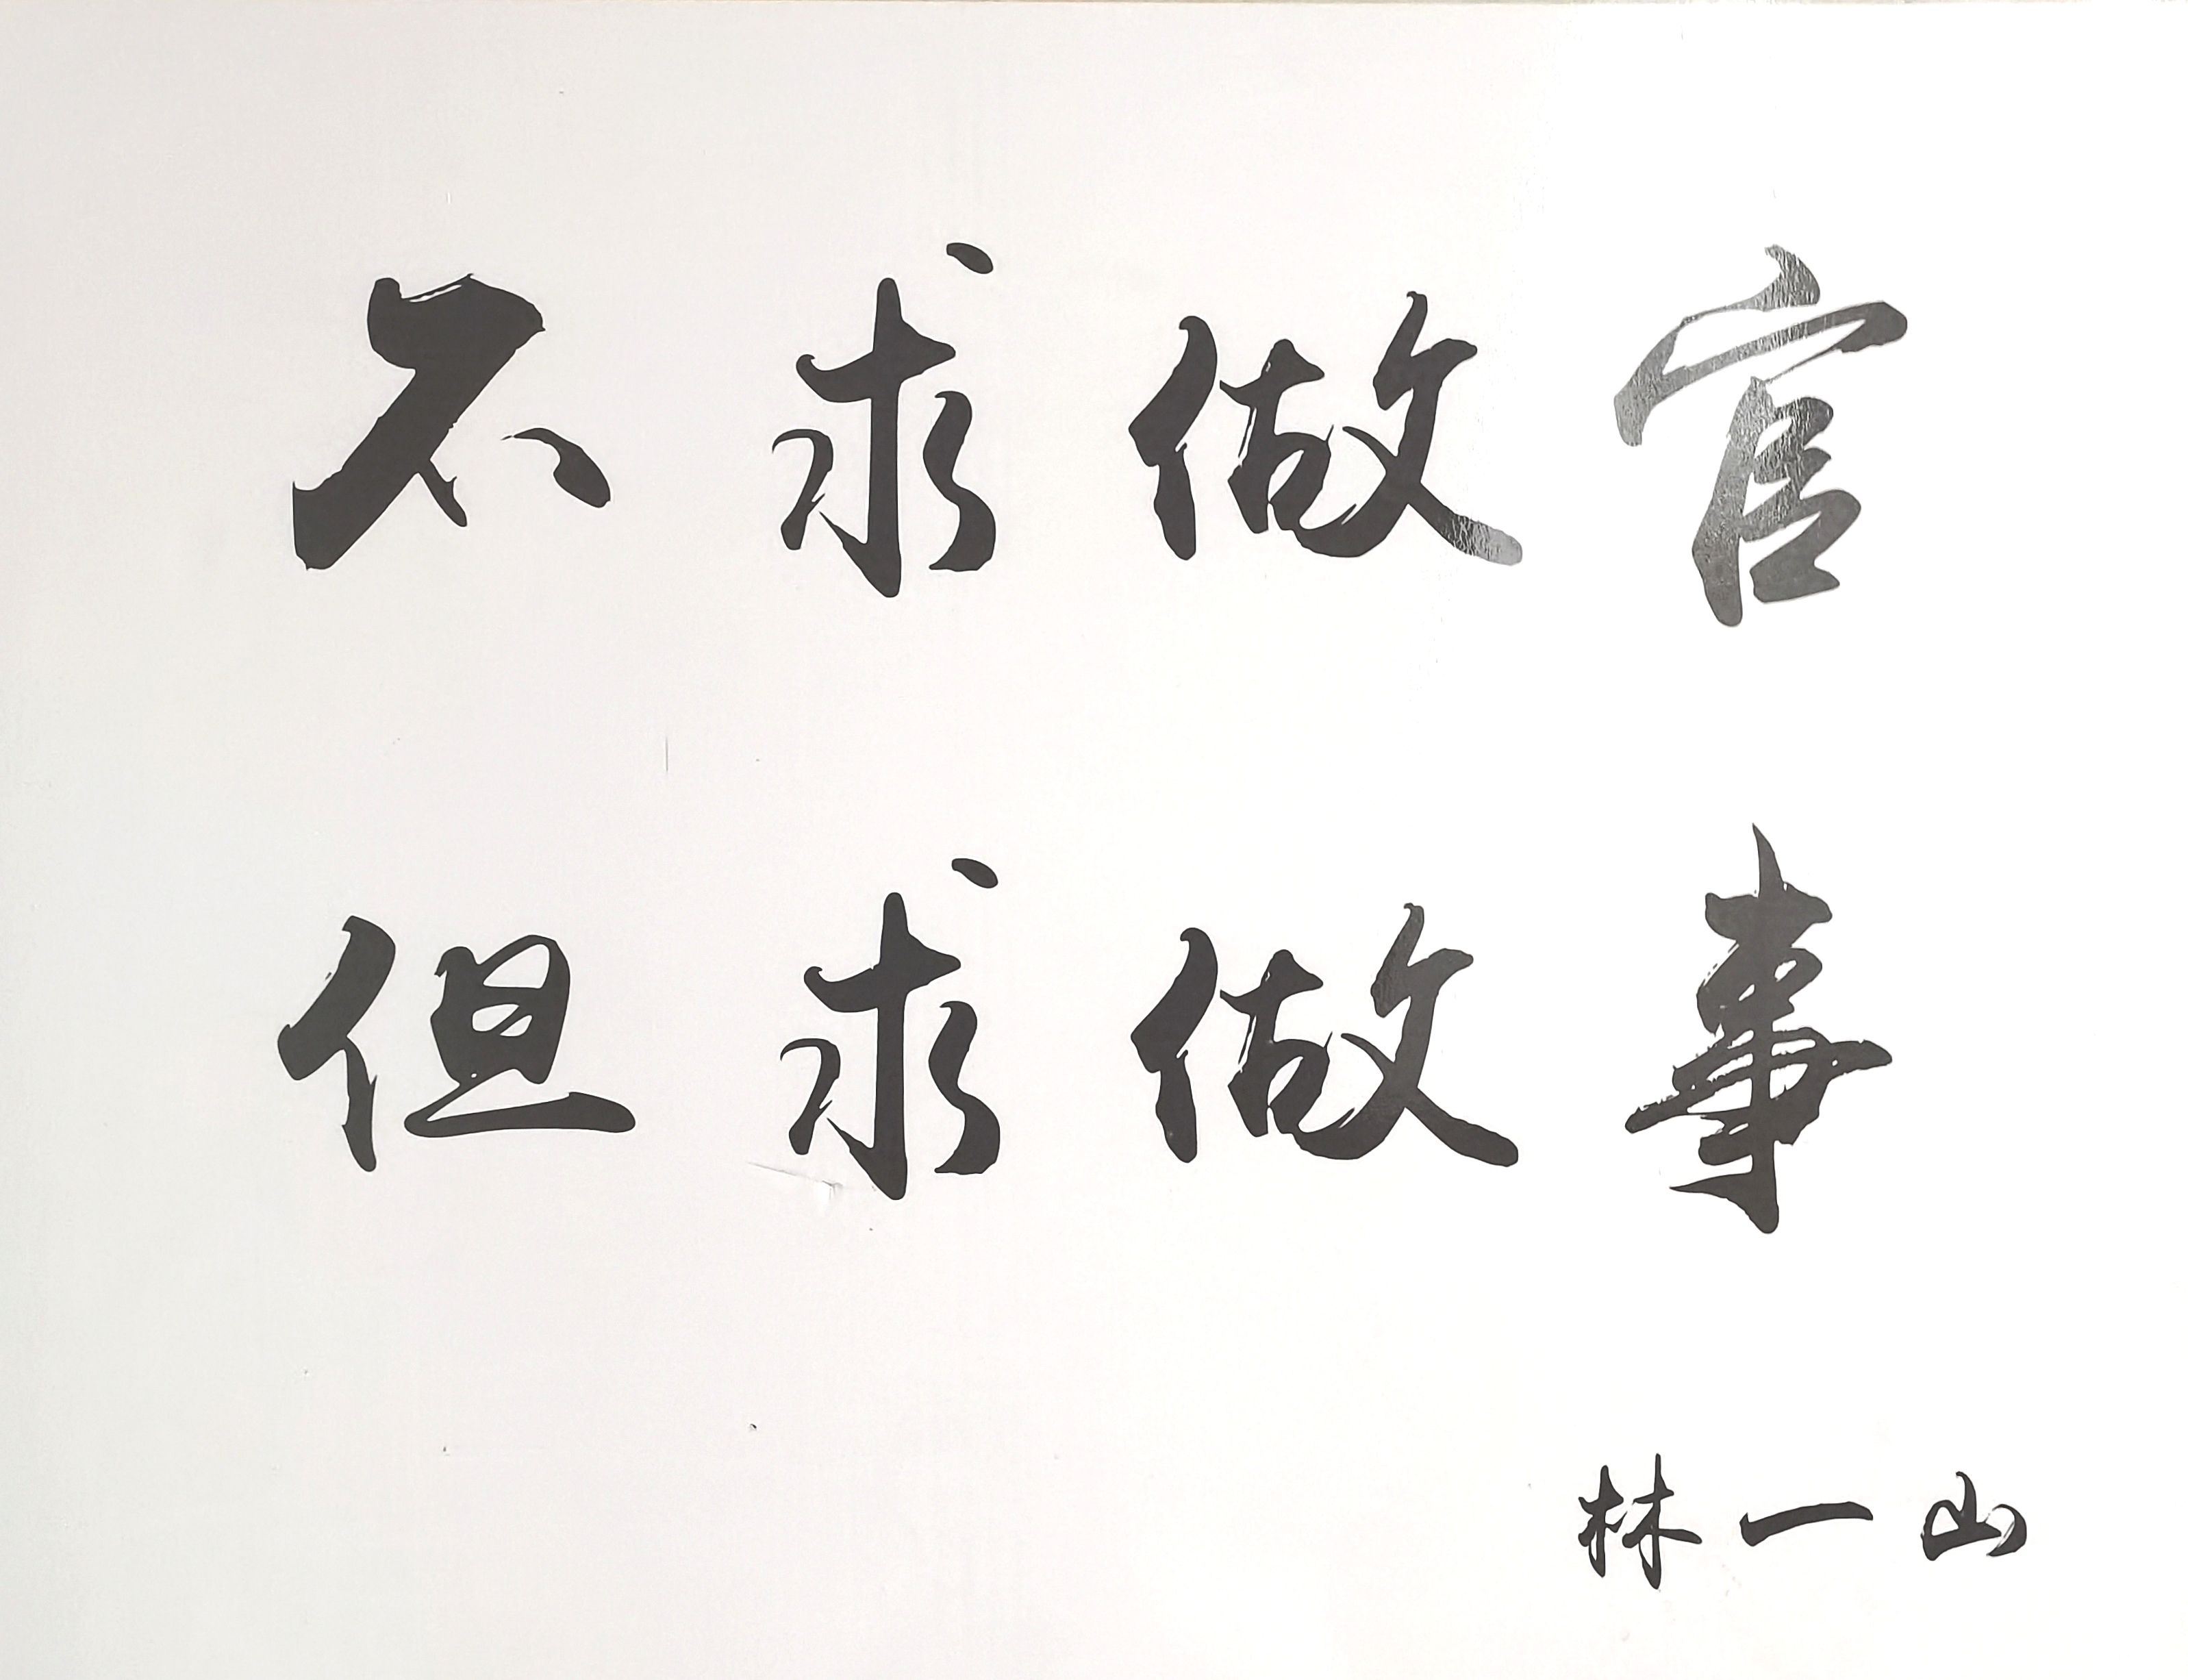 不求做官
但求做事
林一山